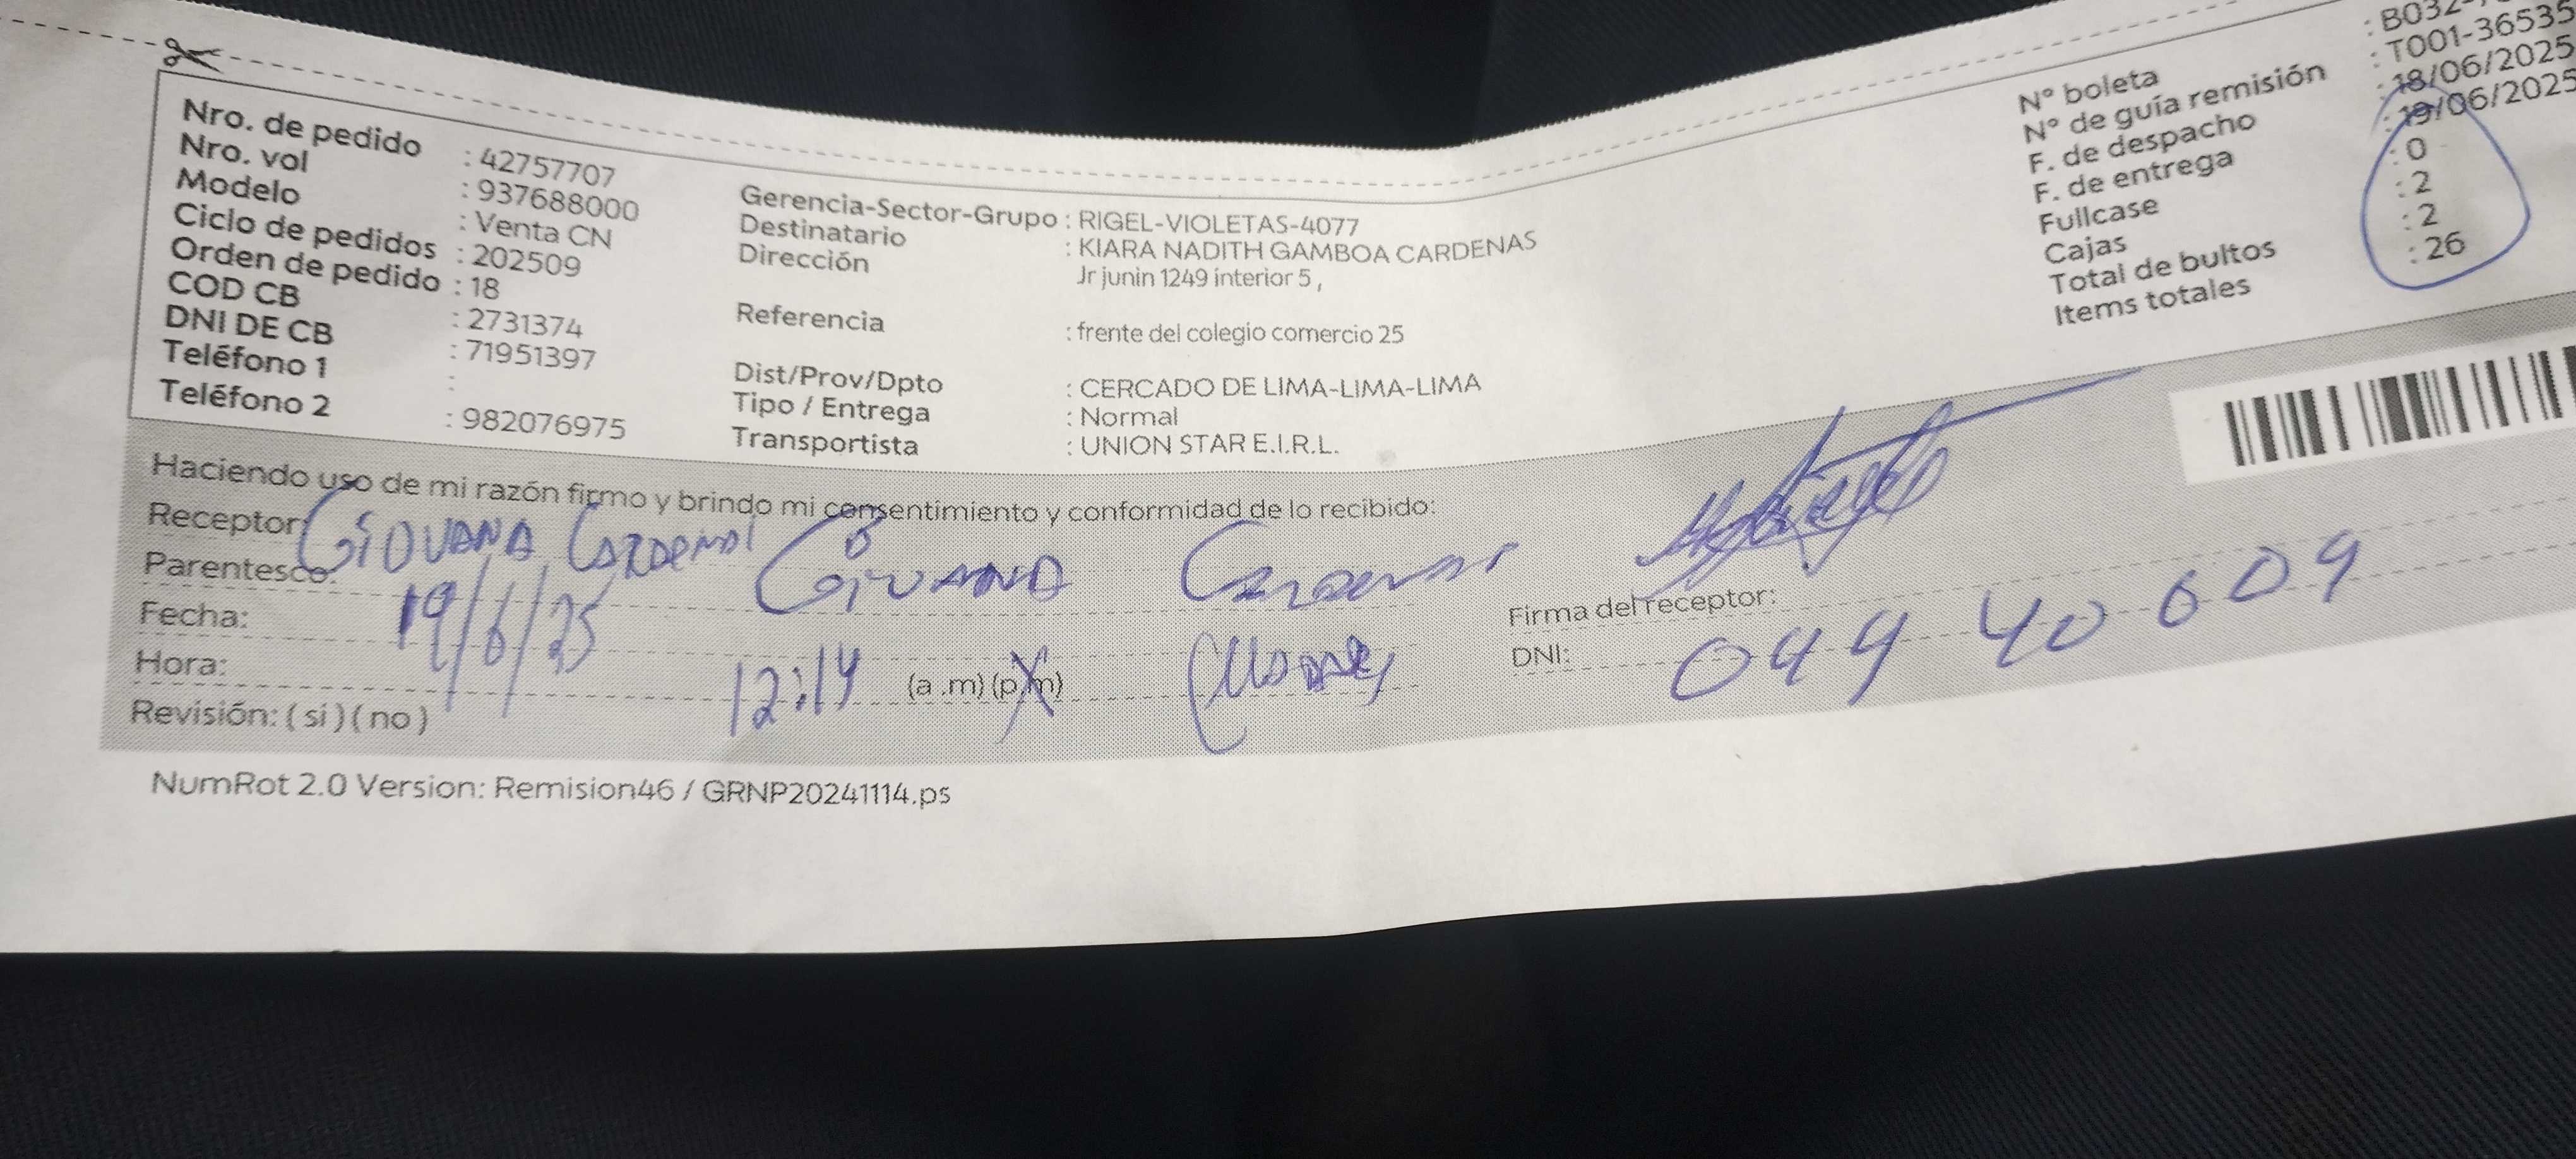 Nro. de pedido : 42757707
Nro. vol : 937688000
Modelo : Venta CN
Ciclo de pedidos : 202509
Orden de pedido : 18
COD CB : 2731374
DNI DE CB : 71951397
Teléfono 1 :
Teléfono 2 : 982076975
Gerencia-Sector-Grupo : RIGEL-VIOLETAS-4077
Destinatario : KIARA NADITH GAMBOA CARDENAS
Dirección Jr junin 1249 interior 5 ,
Referencia : frente del colegio comercio 25
Dist/Prov/Dpto : CERCADO DE LIMA-LIMA-LIMA
Tipo / Entrega : Normal
Transportista : UNION STAR E.I.R.L.
N° boleta : B032-
N° de guía remisión : T001-36535
F. de despacho : 18/06/2025
F. de entrega : 19/06/2025
Fullcase : 0
Cajas : 2
Total de bultos : 2
Items totales : 26
Haciendo uso de mi razón firmo y brindo mi consentimiento y conformidad de lo recibido:
Receptor: GIOVANA CARDENAS
Parentesco: GIOVANA CARDENAS
Firma del receptor:
Fecha: 19/6/25
DNI: 044 40 609
Hora: 12:14 (a .m) (p.m)
Revisión: ( si ) ( no )
NumRot 2.0 Version: Remision46 / GRNP20241114.ps